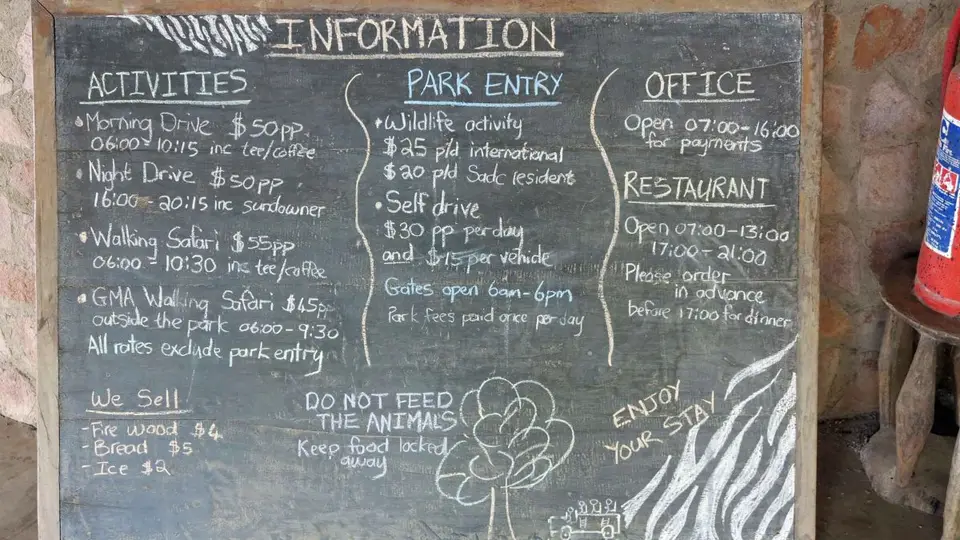 INFORMATION
ACTIVITIES
• Morning Drive $50pp
06:00 - 10:15 inc tee/coffee
• Night Drive $50pp
16:00 - 20:15 inc sundowner
• Walking Safari $55pp
06:00 - 10:30 inc tee/coffee
• GMA Walking Safari $45pp
outside the park 06:00 - 9:30
All rates exclude park entry
PARK ENTRY
• Wildlife activity
$25 p/d international
$20 p/d Sadc resident
• Self drive
$30 pp per day
and $15 per vehicle
Gates open 6am-6pm
Park fees paid once per day
OFFICE
Open 07:00-16:00
for payments
RESTAURANT
Open 07:00-13:00
17:00-21:00
Please order
in advance
before 17:00 for dinner
We Sell
- Fire wood $4
- Bread $5
- Ice $2
DO NOT FEED
THE ANIMALS
Keep food locked
away
ENJOY
YOUR STAY